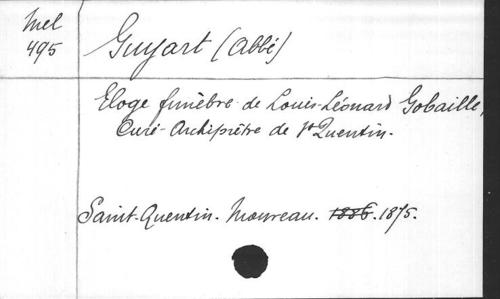 Mel
495
Guyart (Abbé)
Eloge funèbre de Louis-Léonard Gobaille,
Curé-Archiprêtre de St Quentin.
Saint-Quentin. Moureau. 1886. 1875.